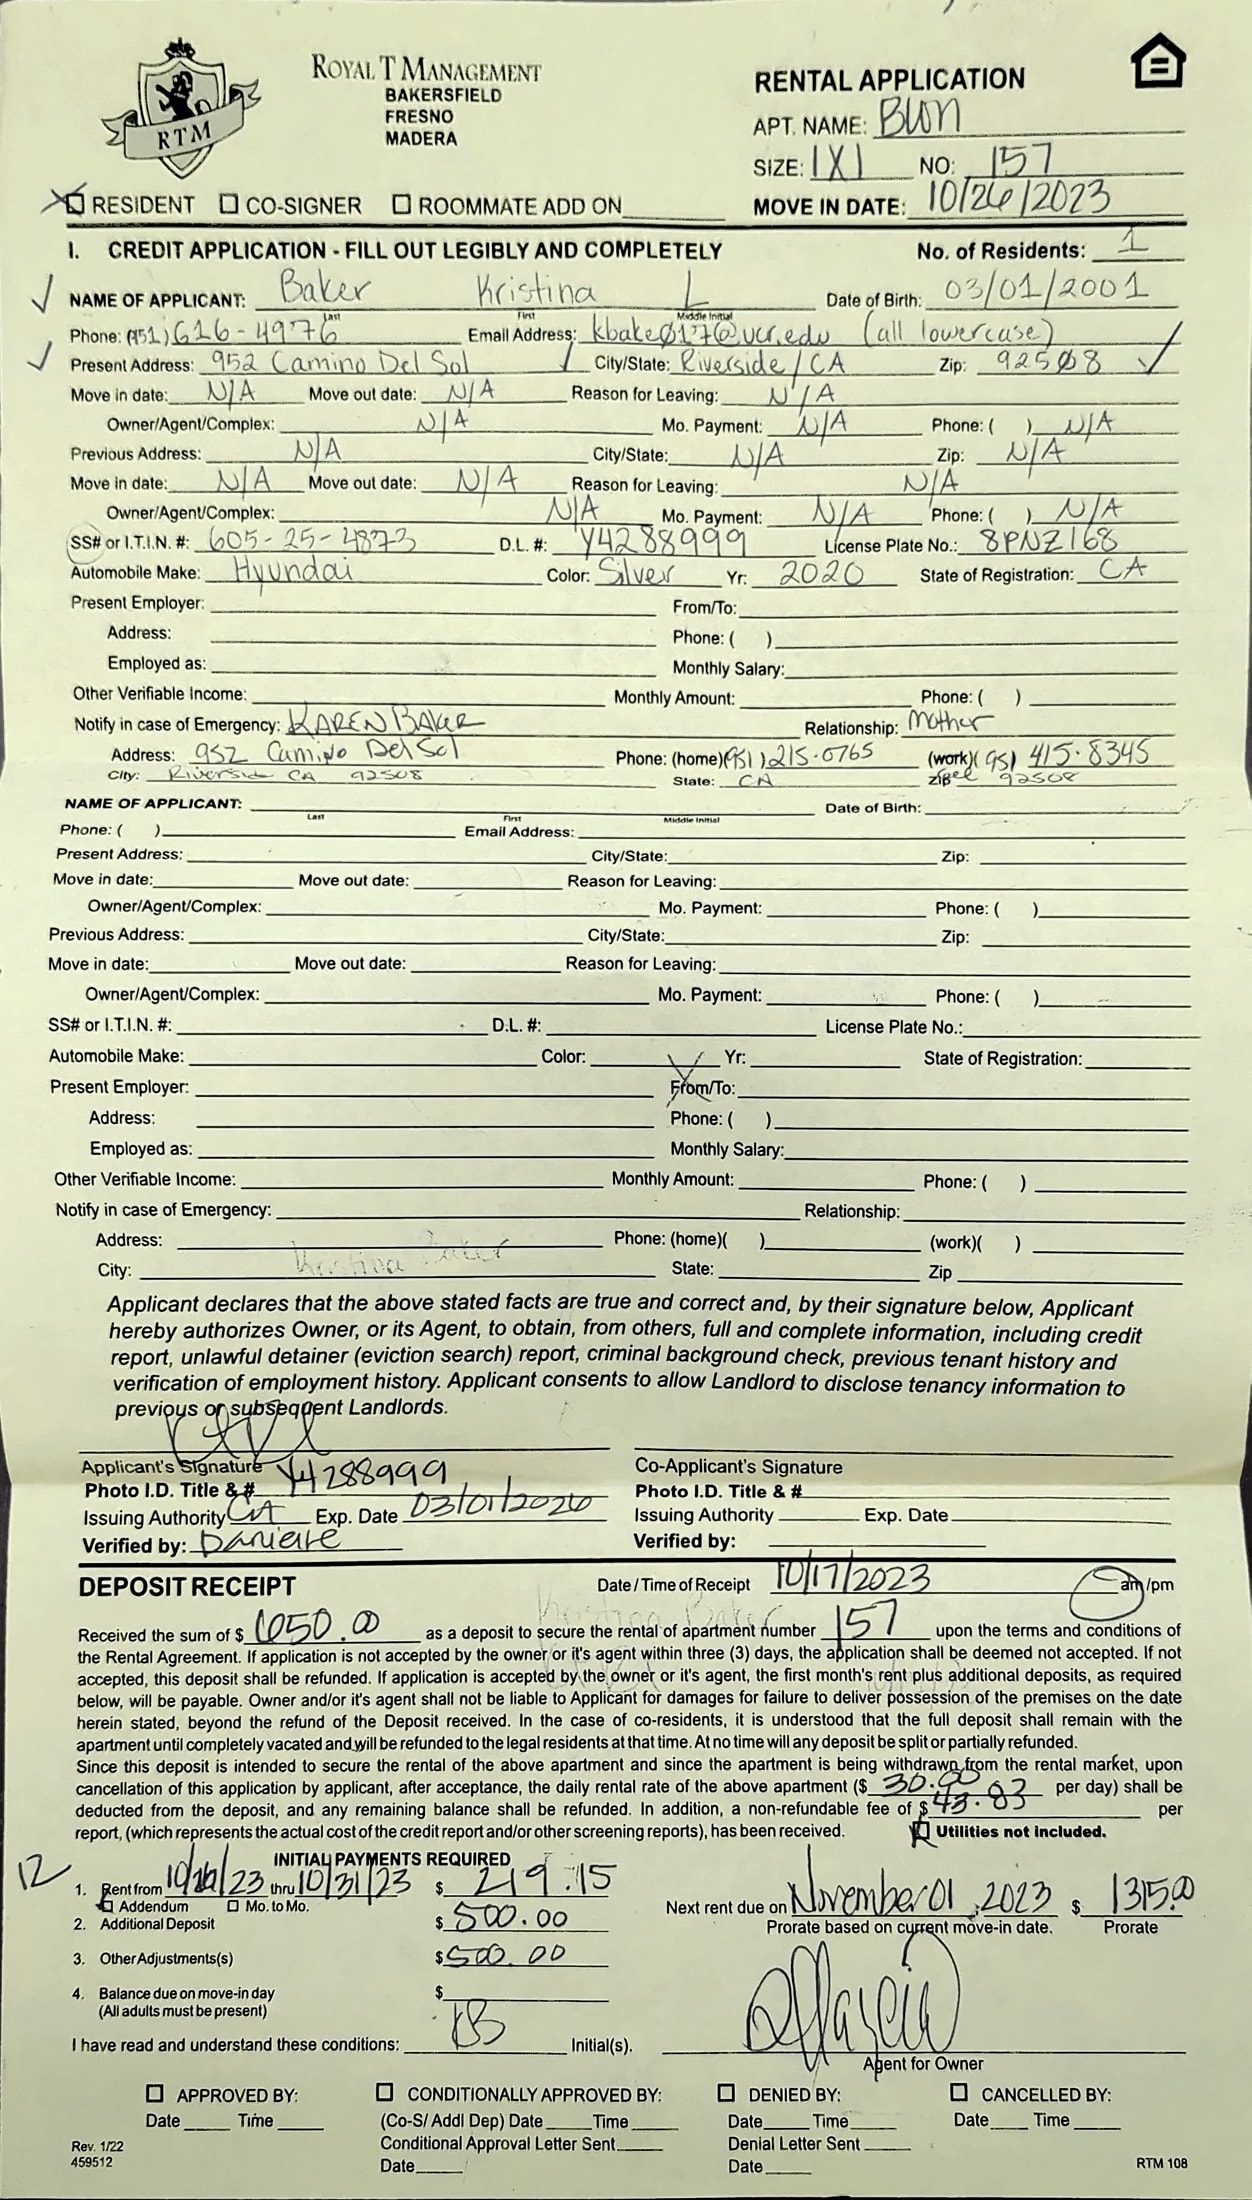 ROYAL T MANAGEMENT
BAKERSFIELD
FRESNO
MADERA
RTM
RENTAL APPLICATION
APT. NAME: BWN
SIZE: 1X1 NO: 157
RESIDENT CO-SIGNER ROOMMATE ADD ON
MOVE IN DATE: 10/26/2023
I. CREDIT APPLICATION - FILL OUT LEGIBLY AND COMPLETELY No. of Residents: 1
NAME OF APPLICANT: Baker Kristina L Date of Birth: 03/01/2001
Last First Middle Initial
Phone: (951) 616-4976 Email Address: kbake017@ucr.edu (all lowercase)
Present Address: 952 Camino Del Sol City/State: Riverside/CA Zip: 92508
Move in date: N/A Move out date: N/A Reason for Leaving: N/A
Owner/Agent/Complex: N/A Mo. Payment: N/A Phone: ( ) N/A
Previous Address: N/A City/State: N/A Zip: N/A
Move in date: N/A Move out date: N/A Reason for Leaving: N/A
Owner/Agent/Complex: N/A Mo. Payment: N/A Phone: ( ) N/A
SS# or I.T.I.N. #: 605-25-4873 D.L. #: Y4288999 License Plate No.: 8PNZ168
Automobile Make: Hyundai Color: Silver Yr: 2020 State of Registration: CA
Present Employer: From/To:
Address: Phone: ( )
Employed as: Monthly Salary:
Other Verifiable Income: Monthly Amount: Phone: ( )
Notify in case of Emergency: KAREN BAKER Relationship: Mother
Address: 952 Camino Del Sol Phone: (home)(951) 215-0765 (work)(951 415-8345
City: Riverside CA 92508 State: CA Zip cell 92508
NAME OF APPLICANT: Date of Birth:
Last First Middle Initial
Phone: ( ) Email Address:
Present Address: City/State: Zip:
Move in date: Move out date: Reason for Leaving:
Owner/Agent/Complex: Mo. Payment: Phone: ( )
Previous Address: City/State: Zip:
Move in date: Move out date: Reason for Leaving:
Owner/Agent/Complex: Mo. Payment: Phone: ( )
SS# or I.T.I.N. #: D.L. #: License Plate No.:
Automobile Make: Color: Yr: State of Registration:
Present Employer: From/To:
Address: Phone: ( )
Employed as: Monthly Salary:
Other Verifiable Income: Monthly Amount: Phone: ( )
Notify in case of Emergency: Relationship:
Address: Phone: (home)( ) (work)( )
Kristina Baker
City: State: Zip
Applicant declares that the above stated facts are true and correct and, by their signature below, Applicant
hereby authorizes Owner, or its Agent, to obtain, from others, full and complete information, including credit
report, unlawful detainer (eviction search) report, criminal background check, previous tenant history and
verification of employment history. Applicant consents to allow Landlord to disclose tenancy information to
previous or subsequent Landlords.
Applicant's Signature Co-Applicant's Signature
Photo I.D. Title & # Y4288999 Photo I.D. Title & #
Issuing Authority CA Exp. Date 03/01/2026 Issuing Authority Exp. Date
Verified by: Daniele Verified by:
DEPOSIT RECEIPT Date/Time of Receipt 10/17/2023 am/pm
Kristina Baker
Received the sum of $ 650.00 as a deposit to secure the rental of apartment number 157 upon the terms and conditions of
the Rental Agreement. If application is not accepted by the owner or it's agent within three (3) days, the application shall be deemed not accepted. If not
accepted, this deposit shall be refunded. If application is accepted by the owner or it's agent, the first month's rent plus additional deposits, as required
below, will be payable. Owner and/or it's agent shall not be liable to Applicant for damages for failure to deliver possession of the premises on the date
herein stated, beyond the refund of the Deposit received. In the case of co-residents, it is understood that the full deposit shall remain with the
apartment until completely vacated and will be refunded to the legal residents at that time. At no time will any deposit be split or partially refunded.
Since this deposit is intended to secure the rental of the above apartment and since the apartment is being withdrawn from the rental market, upon
cancellation of this application by applicant, after acceptance, the daily rental rate of the above apartment ($ 30.00 per day) shall be
deducted from the deposit, and any remaining balance shall be refunded. In addition, a non-refundable fee of $ 43.83 per
report, (which represents the actual cost of the credit report and/or other screening reports), has been received. Utilities not included.
INITIAL PAYMENTS REQUIRED
12
1. Rent from 10/26/23 thru 10/31/23 $ 219.15 Next rent due on November 01, 2023 $ 1315.00
Addendum Mo. to Mo. Prorate based on current move-in date. Prorate
2. Additional Deposit $ 500.00
3. Other Adjustments(s) $ 500.00
4. Balance due on move-in day $
(All adults must be present)
I have read and understand these conditions: KB Initial(s).
Agent for Owner
APPROVED BY: CONDITIONALLY APPROVED BY: DENIED BY: CANCELLED BY:
Date Time (Co-S/ Addl Dep) Date Time Date Time Date Time
Rev. 1/22 Conditional Approval Letter Sent Denial Letter Sent
459512 Date Date RTM 108